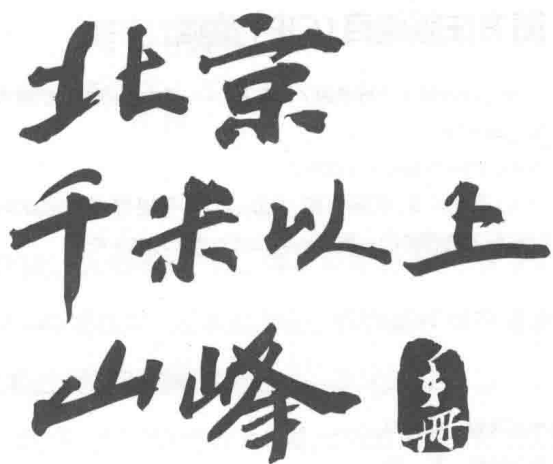 北京
千米以上
山峰
手册